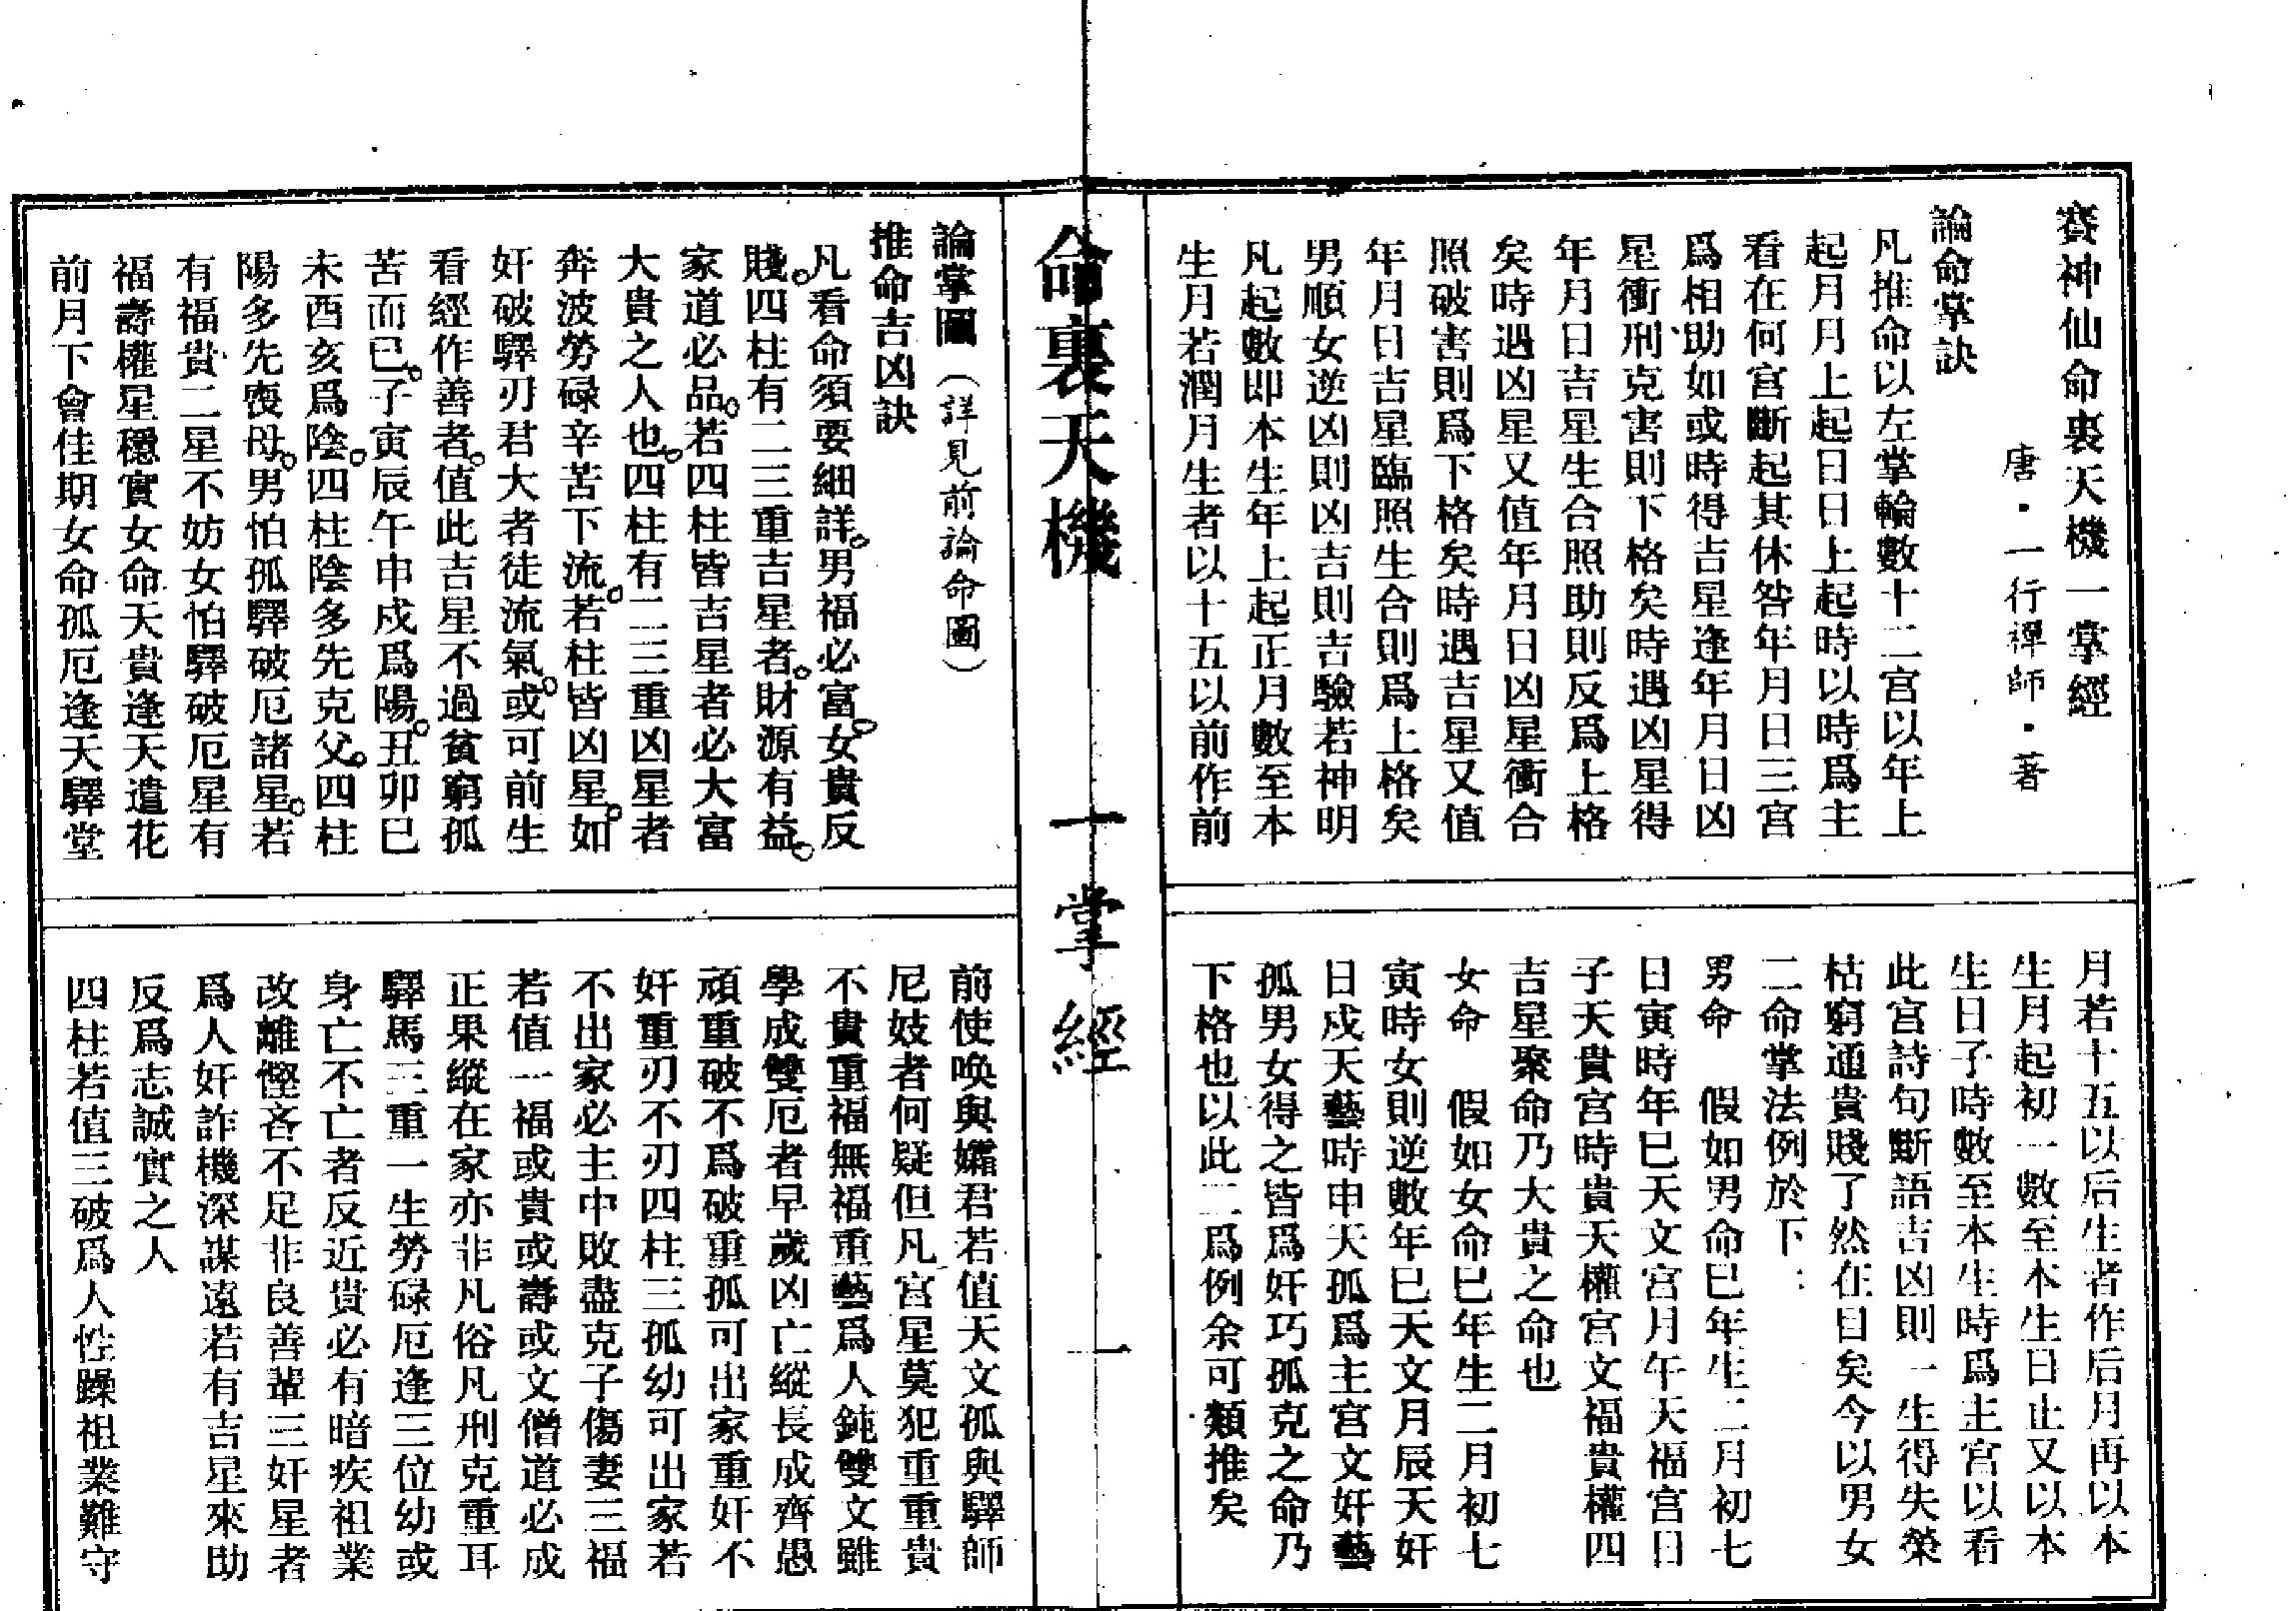 賽神仙命裏天機一掌經
唐·一行禪師·著
論命掌訣
凡推命以左掌輪數十二宮以年上
起月月上起日日上起時以時爲主
看在何宮斷起其休咎年月日三宮
爲相助如或時得吉星逢年月日凶
星衝刑克害則下格矣時遇凶星得
年月日吉星生合照助則反爲上格
矣時遇凶星又值年月日凶星衝合
照破害則爲下格矣時遇吉星又值
年月日吉星臨照生合則爲上格矣
男順女逆凶則凶吉則吉驗若神明
凡起數即本生年上起正月數至本
生月若潤月生者以十五以前作前
月若十五以后生者作后月再以本
生月起初一數至本生日止又以本
生日子時數至本生時爲主宮以看
此宮詩句斷語吉凶則一生得失榮
枯窮通貴賤了然在目矣今以男女
二命掌法例於下：
男命　假如男命巳年生二月初七
日寅時年巳天文宮月午天福宮日
子天貴宮時貴天權宮文福貴權四
吉星聚命乃大貴之命也
女命　假如女命巳年生二月初七
寅時女則逆數年巳天文月辰天奸
日戍天藝時申天孤爲主宮文奸藝
孤男女得之皆爲奸巧孤克之命乃
下格也以此二爲例余可類推矣
命裏天機　一掌經　一
論掌圖（詳見前論命圖）
推命吉凶訣
凡看命須要細詳。男福必富。女貴反
賤。四柱有二三重吉星者。財源有益。
家道必品。若四柱皆吉星者必大富
大貴之人也。四柱有二三重凶星者
奔波勞碌辛苦下流。若柱皆凶星。如
奸破驛刃君大者徒流氣。或可前生
看經作善者。值此吉星不過貧窮孤
苦而已。子寅辰午申戍爲陽。丑卯巳
未酉亥爲陰。四柱陰多先克父。四柱
陽多先喪母。男怕孤驛破厄諸星。若
有福貴二星不妨女怕驛破厄星有
福壽權星穩實女命天貴逢天遣花
前月下會佳期女命孤厄逢天驛堂
前使唤與孀君若值天文孤與驛師
尼妓者何疑但凡宮星莫犯重重貴
不貴重福無福重藝爲人鈍雙文雖
學成雙厄者早歲凶亡縱長成齊愚
頑重破不爲破重孤可出家重奸不
奸重刃不刃四柱三孤幼可出家若
不出家必主中敗盡克子傷妻三福
若值一福或貴或壽或文僧道必成
正果縱在家亦非凡俗凡刑克重耳
驛馬三重一生勞碌厄逢三位幼或
身亡不亡者反近貴必有暗疾祖業
改離慳吝不足非良善輩三奸星者
爲人奸詐機深謀遠若有吉星來助
反爲志誠實之人
四柱若值三破爲人性躁祖業難守